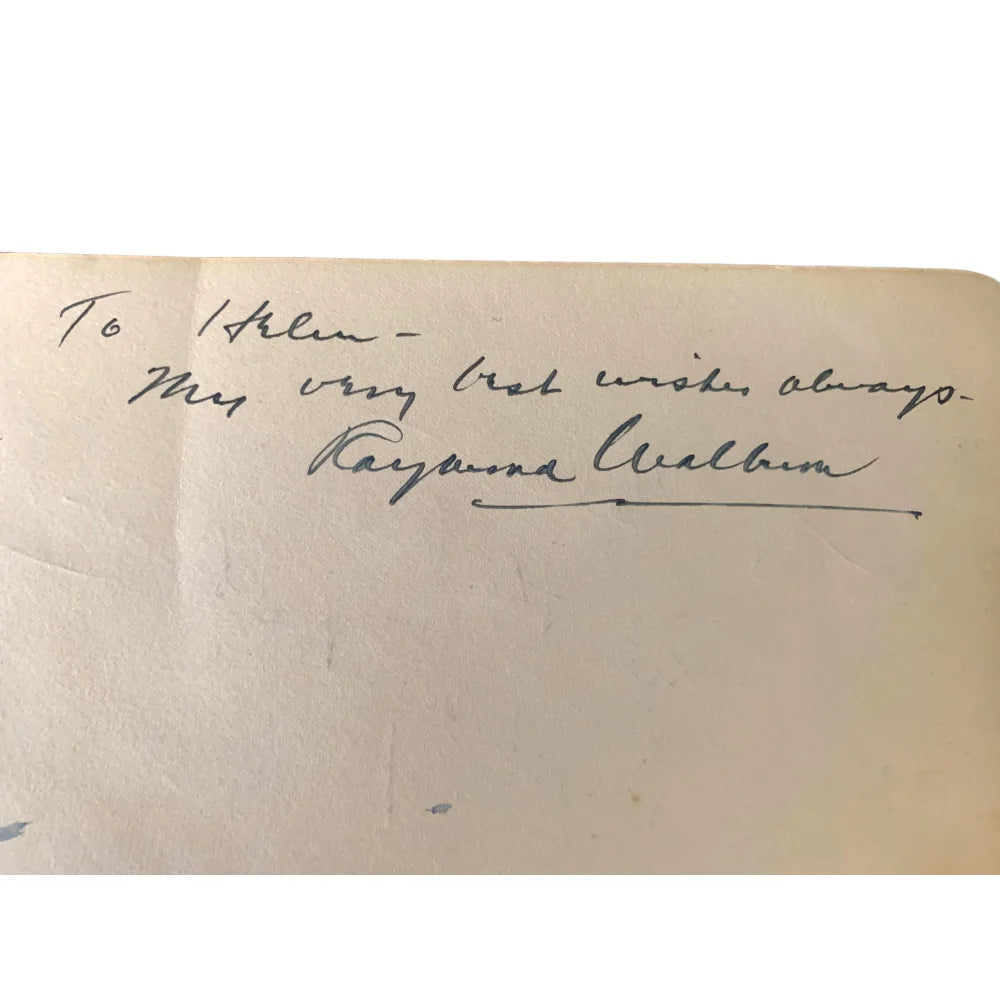 To Helen –
My very best wishes always –
Raymond Walburn